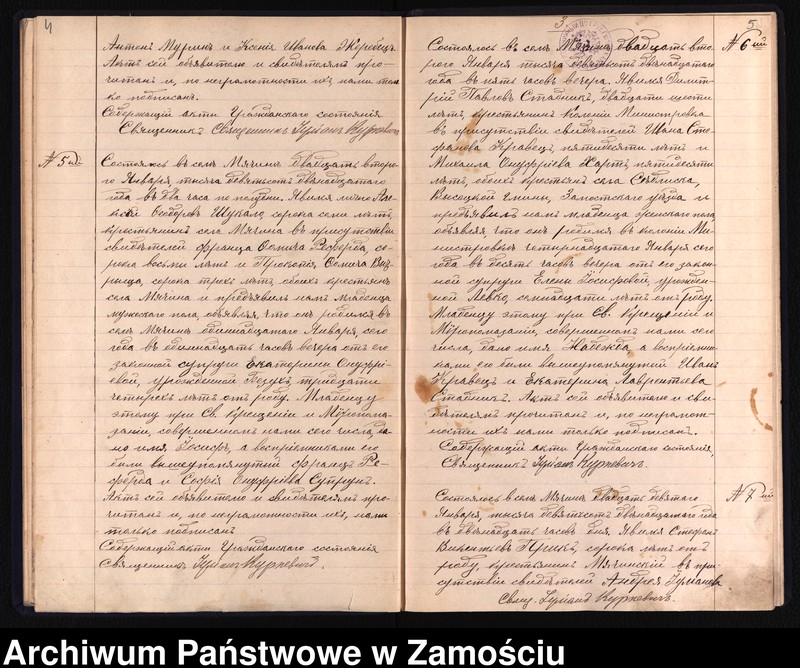 4
Антонъ Мурмыл и Ксенія Иванова Жеребецъ.
Актъ сей объявителю и свидѣтелямъ про-
читанъ и, по неграмотности ихъ нами толь
ко подписанъ.
Содержащій акты Гражданскаго состоянія
Священникъ Священникъ Куркевичъ
№ 5ый
Состоялось въ селѣ Мячинѣ двадцать второ-
го Января, тысяча девятьсотъ двѣнадцатаго
года въ два часа по полудни. Явился лично
Ѳеодоровъ Шукало, сорока семи лѣтъ,
крестьянинъ села Мячина въ присутствіи
свидѣтелей Франца Ѳомича Реферда, со-
рока восьми лѣтъ и Прокопія Ѳомича
сорока трехъ лѣтъ, обоихъ крестьянъ
села Мячина и предъявилъ намъ младенца
мужескаго пола, объявляя, что онъ родился въ
селѣ Мячинѣ одиннадцатаго Января, сего
года въ одиннадцать часовъ вечера отъ его
законной супруги Екатерины Онуфрі-
евой, урожденной тридцати
четырехъ лѣтъ отъ роду. Младенцу
этому при Св. Крещеніи и Мѵропома-
заніи, совершенномъ нами сего числа, да-
но имя Іосифъ, а воспріемниками его
были вышеупомянутый Францъ Ре-
ферда и Софія Онуфріева Супрунъ.
Актъ сей объявителю и свидѣтелямъ про-
читанъ и, по неграмотности ихъ, нами
только подписанъ
Содержащій акты Гражданскаго состоянія
Священникъ Куркевичъ.
3
5
№ 6ый
Состоялось въ селѣ Мячинѣ двадцать вто-
рого Января тысяча девятьсотъ двѣнадцатаго года
въ пять часовъ вечера. Явился Димит-
рій Павловъ Стадникъ, двадцати шести
лѣтъ, крестьянинъ колоніи Министровка
въ присутствіи свидѣтелей Ивана Сте-
фанова Кравецъ, пятидесяти лѣтъ и
Михаила Онуфріева Хартъ, пятидесяти
лѣтъ, обоихъ крестьянъ села
Высоцкой Гмины, Замостскаго уѣзда и
предъявилъ намъ младенца женскаго пола
объявляя, что онъ родился въ колоніи Ми-
нистровкѣ четырнадцатаго Января сего
года въ десять часовъ вечера отъ его закон-
ной супруги Елены Іосифовой, урожден-
ной Левко, семнадцати лѣтъ отъ роду.
Младенцу этому при Св. Крещеніи и
Мѵропомазаніи, совершенномъ нами сего
числа, дано имя Надежда, а воспріемни-
ками его были вышеупомянутый Иванъ
Кравецъ и Екатерина Лаврентьева
Стадникъ. Актъ сей объявителю и сви-
дѣтелямъ прочитанъ и, по неграмот-
ности ихъ нами только подписанъ.
Содержащій акты Гражданскаго состоянія,
Священникъ Куркевичъ.
№ 7ый
Состоялось въ селѣ Мячинѣ двадцать девятаго
Января, тысяча девятьсотъ двѣнадцатаго года
въ двѣнадцать часовъ дня. Явился Стефанъ
Викентьевъ сорока лѣтъ отъ
роду, крестьянинъ Мячинскій въ при-
сутствіи свидѣтелей Андрея
Свящ. Куркевичъ.
Archiwum Państwowe w Zamościu